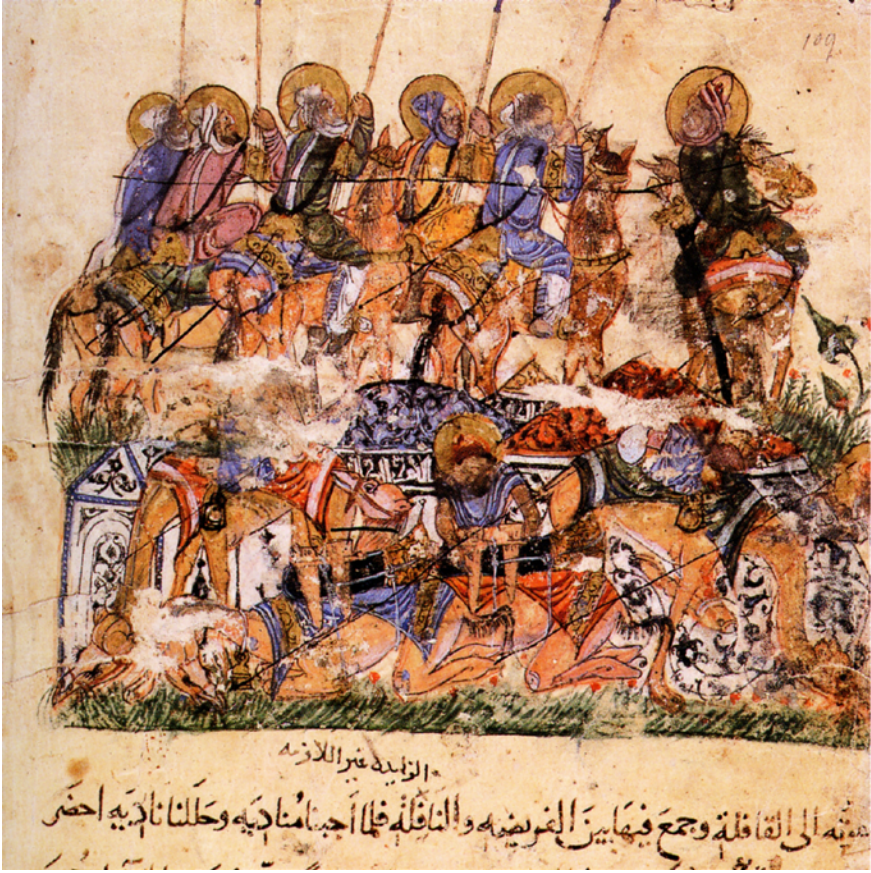 109
الزايده غير اللازمه
الى القافلة وجمع فيها بين الفريضه والنافلة فلما أجبنا مناديه وحللنا ناديه احضَر